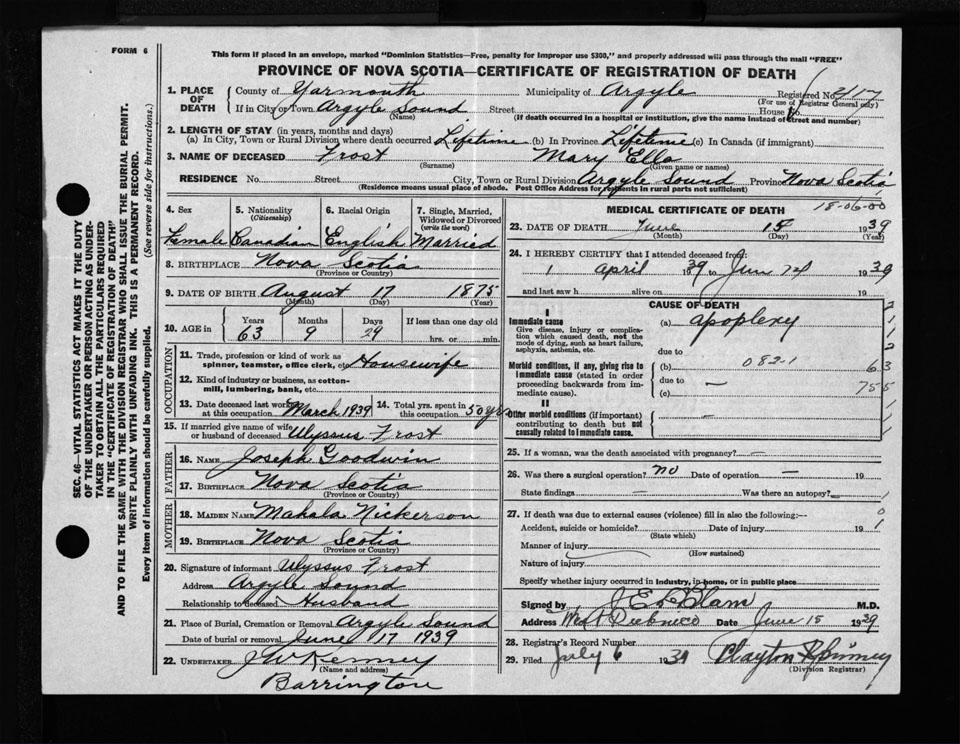 FORM 6
This form if placed in an envelope, marked "Dominion Statistics—Free, penalty for improper use $300," and properly addressed will pass through the mail "FREE"
PROVINCE OF NOVA SCOTIA—CERTIFICATE OF REGISTRATION OF DEATH
SEC. 46—VITAL STATISTICS ACT MAKES IT THE DUTY
OF THE UNDERTAKER OR PERSON ACTING AS UNDER-
TAKER TO OBTAIN ALL THE PARTICULARS REQUIRED
IN THE "CERTIFICATE OF REGISTRATION OF DEATH"
AND TO FILE THE SAME WITH THE DIVISION REGISTRAR WHO SHALL ISSUE THE BURIAL PERMIT.
WRITE PLAINLY WITH UNFADING INK. THIS IS A PERMANENT RECORD.
Every item of information should be carefully supplied. (See reverse side for instructions.)
1. PLACE OF DEATH
County of Yarmouth Municipality of Argyle Registered No.
(For use of Registrar General only)
If in City or Town Argyle Sound Street House No.
(Name) (If death occurred in a hospital or institution, give the name instead of street and number)
2. LENGTH OF STAY (in years, months and days)
(a) In City, Town or Rural Division where death occurred Lifetime (b) In Province Lifetime (c) In Canada (if immigrant)
3. NAME OF DECEASED Frost Mary Ella
(Surname) (Given name or names)
RESIDENCE No. Street City, Town or Rural Division Argyle Sound Province Nova Scotia
(Residence means usual place of abode. Post Office Address for residents in rural parts not sufficient)
4. Sex 5. Nationality (Citizenship) 6. Racial Origin 7. Single, Married, Widowed or Divorced (write the word)
Female Canadian English Married
8. BIRTHPLACE Nova Scotia
(Province or Country)
9. DATE OF BIRTH August 17 1875
(Month) (Day) (Year)
10. AGE in Years Months Days If less than one day old
63 9 29 hrs. or min.
OCCUPATION
11. Trade, profession or kind of work as
spinner, teamster, office clerk, etc. Housewife
12. Kind of industry or business, as cotton-
mill, lumbering, bank, etc.
13. Date deceased last worked
at this occupation March 1939
14. Total yrs. spent in
this occupation 50 yrs
15. If married give name of wife
or husband of deceased Ulyssus Frost
FATHER
16. Name Joseph Goodwin
17. Birthplace Nova Scotia
(Province or Country)
MOTHER
18. Maiden Name Mahala Nickerson
19. Birthplace Nova Scotia
(Province or Country)
20. Signature of informant Ulyssus Frost
Address Argyle Sound
Relationship to deceased Husband
21. Place of Burial, Cremation or Removal Argyle Sound
Date of burial or removal June 17 1939
22. UNDERTAKER J W Kenney
(Name and address)
Barrington
MEDICAL CERTIFICATE OF DEATH 18-06-00
23. DATE OF DEATH June 15 1939
(Month) (Day) (Year)
24. I HEREBY CERTIFY that I attended deceased from:
1 april 1939 to June 14 1939
and last saw h alive on 19
CAUSE OF DEATH
I
Immediate cause (a) apoplexy
Give disease, injury or complica-
tion which caused death, not the
mode of dying, such as heart failure,
asphyxia, asthenia, etc. due to
Morbid conditions, if any, giving rise to (b) 082-1 63
immediate cause (stated in order due to —
proceeding backwards from im- (c) 755
mediate cause).
II
Other morbid conditions (if important)
contributing to death but not
causally related to immediate cause. —
25. If a woman, was the death associated with pregnancy? —
26. Was there a surgical operation? no Date of operation — 19
State findings — Was there an autopsy? —
27. If death was due to external causes (violence) fill in also the following:—
Accident, suicide or homicide? Date of injury 19
(State which)
Manner of injury
(How sustained)
Nature of injury
Specify whether injury occurred in industry, in home, or in public place
Signed by M.D.
Address West Pubnico Date June 15 1939
28. Registrar's Record Number
29. Filed July 6 1939 Clayton
(Division Registrar)